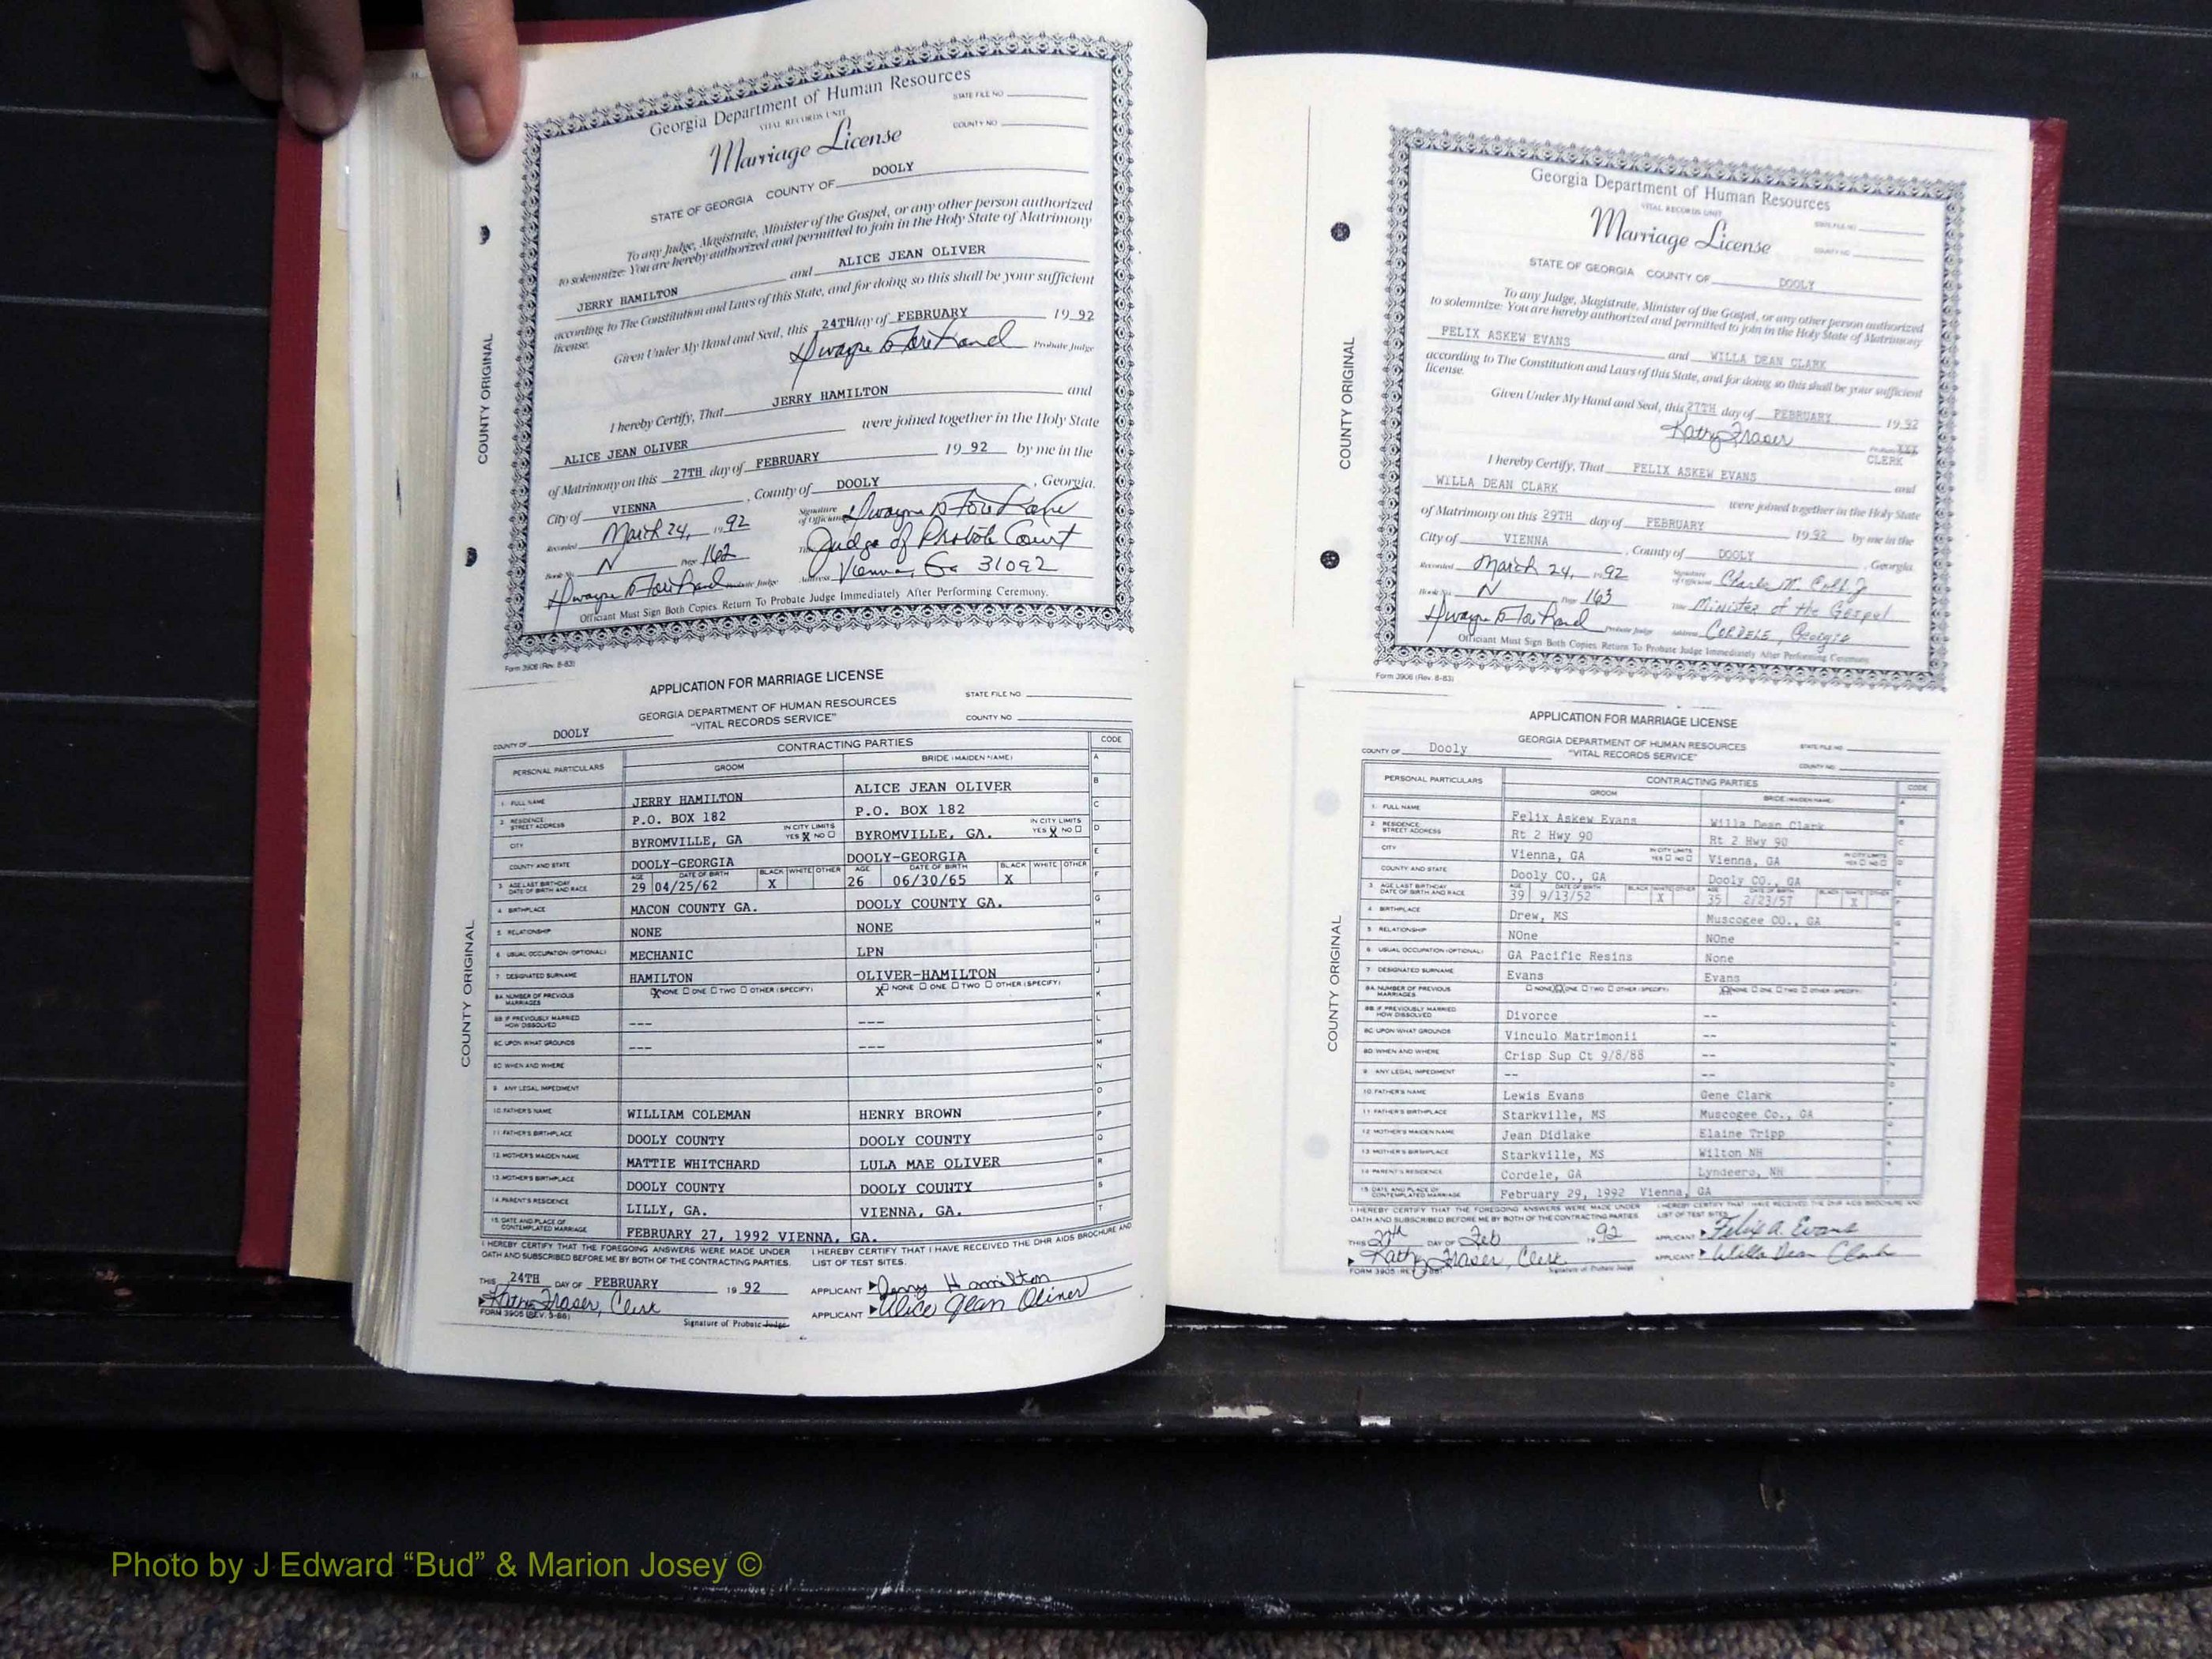 Georgia Department of Human Resources
VITAL RECORDS UNIT
STATE FILE NO
COUNTY NO
Marriage License
STATE OF GEORGIA COUNTY OF DOOLY
To any Judge, Magistrate, Minister of the Gospel, or any other person authorized
to solemnize: You are hereby authorized and permitted to join in the Holy State of Matrimony
JERRY HAMILTON and ALICE JEAN OLIVER
according to The Constitution and Laws of this State, and for doing so this shall be your sufficient
license.
Given Under My Hand and Seal, this 24TH day of FEBRUARY 19 92
Probate Judge
I hereby Certify, That JERRY HAMILTON and
ALICE JEAN OLIVER were joined together in the Holy State
of Matrimony on this 27TH day of FEBRUARY 19 92 by me in the
City of VIENNA, County of DOOLY, Georgia.
Recorded March 24, 1992 Signature of Officiant
Book No. N Page 162 Title Judge of Probate Court
Probate Judge Address Vienna, Ga 31092
Officiant Must Sign Both Copies. Return To Probate Judge Immediately After Performing Ceremony.
Form 3906 (Rev. 8-83)
COUNTY ORIGINAL
APPLICATION FOR MARRIAGE LICENSE
GEORGIA DEPARTMENT OF HUMAN RESOURCES
"VITAL RECORDS SERVICE"
STATE FILE NO
COUNTY NO
COUNTY OF DOOLY
PERSONAL PARTICULARS CONTRACTING PARTIES CODE
GROOM BRIDE (MAIDEN NAME) A
1. FULL NAME JERRY HAMILTON ALICE JEAN OLIVER B
2. RESIDENCE STREET ADDRESS P.O. BOX 182 P.O. BOX 182 C
CITY BYROMVILLE, GA IN CITY LIMITS YES X NO BYROMVILLE, GA. IN CITY LIMITS YES X NO D
COUNTY AND STATE DOOLY-GEORGIA DOOLY-GEORGIA E
3. AGE LAST BIRTHDAY DATE OF BIRTH AND RACE AGE 29 DATE OF BIRTH 04/25/62 BLACK X WHITE OTHER AGE 26 DATE OF BIRTH 06/30/65 BLACK X WHITE OTHER F
4. BIRTHPLACE MACON COUNTY GA. DOOLY COUNTY GA. G
5. RELATIONSHIP NONE NONE H
6. USUAL OCCUPATION (OPTIONAL) MECHANIC LPN I
7. DESIGNATED SURNAME HAMILTON OLIVER-HAMILTON J
8A. NUMBER OF PREVIOUS MARRIAGES X NONE ONE TWO OTHER (SPECIFY) X NONE ONE TWO OTHER (SPECIFY) K
8B. IF PREVIOUSLY MARRIED HOW DISSOLVED --- --- L
8C. UPON WHAT GROUNDS --- --- M
8D. WHEN AND WHERE N
9. ANY LEGAL IMPEDIMENT O
10. FATHER'S NAME WILLIAM COLEMAN HENRY BROWN P
11. FATHER'S BIRTHPLACE DOOLY COUNTY DOOLY COUNTY Q
12. MOTHER'S MAIDEN NAME MATTIE WHITCHARD LULA MAE OLIVER R
13. MOTHER'S BIRTHPLACE DOOLY COUNTY DOOLY COUNTY S
14. PARENT'S RESIDENCE LILLY, GA. VIENNA, GA. T
15. DATE AND PLACE OF CONTEMPLATED MARRIAGE FEBRUARY 27, 1992 VIENNA, GA.
I HEREBY CERTIFY THAT THE FOREGOING ANSWERS WERE MADE UNDER
OATH AND SUBSCRIBED BEFORE ME BY BOTH OF THE CONTRACTING PARTIES.
I HEREBY CERTIFY THAT I HAVE RECEIVED THE DHR AIDS BROCHURE AND
LIST OF TEST SITES.
THIS 24TH DAY OF FEBRUARY 19 92 APPLICANT Jerry Hamilton
Kathy Fraser, Clerk APPLICANT Alice Jean Oliver
FORM 3905 (REV. 5-88) Signature of Probate Judge
COUNTY ORIGINAL
Georgia Department of Human Resources
VITAL RECORDS UNIT
STATE FILE NO
Marriage License
COUNTY NO
STATE OF GEORGIA COUNTY OF DOOLY
To any Judge, Magistrate, Minister of the Gospel, or any other person authorized
to solemnize: You are hereby authorized and permitted to join in the Holy State of Matrimony
FELIX ASKEW EVANS and WILLA DEAN CLARK
according to The Constitution and Laws of this State, and for doing so this shall be your sufficient
license.
Given Under My Hand and Seal, this 27TH day of FEBRUARY 19 92
Kathy Fraser
Probate
CLERK
I hereby Certify, That FELIX ASKEW EVANS and
WILLA DEAN CLARK were joined together in the Holy State
of Matrimony on this 29TH day of FEBRUARY 19 92 by me in the
City of VIENNA, County of DOOLY, Georgia.
Recorded March 24, 1992 Signature of Officiant Charles M. Cobb Jr
Book No. N Page 163 Title Minister of the Gospel
Probate Judge Address CORDELE, Georgia
Officiant Must Sign Both Copies. Return To Probate Judge Immediately After Performing Ceremony.
Form 3906 (Rev. 8-83)
COUNTY ORIGINAL
APPLICATION FOR MARRIAGE LICENSE
GEORGIA DEPARTMENT OF HUMAN RESOURCES
"VITAL RECORDS SERVICE"
STATE FILE NO
COUNTY NO
COUNTY OF Dooly
PERSONAL PARTICULARS CONTRACTING PARTIES CODE
GROOM BRIDE (MAIDEN NAME)
1. FULL NAME Felix Askew Evans Willa Dean Clark
2. RESIDENCE STREET ADDRESS Rt 2 Hwy 90 Rt 2 Hwy 90
CITY Vienna, GA IN CITY LIMITS YES NO Vienna, GA IN CITY LIMITS YES NO
COUNTY AND STATE Dooly CO., GA Dooly CO., GA
3. AGE LAST BIRTHDAY DATE OF BIRTH AND RACE AGE 39 DATE OF BIRTH 9/13/52 BLACK WHITE X OTHER AGE 35 DATE OF BIRTH 2/23/57 BLACK WHITE X OTHER
4. BIRTHPLACE Drew, MS Muscogee CO., GA
5. RELATIONSHIP NOne NOne
6. USUAL OCCUPATION (OPTIONAL) GA Pacific Resins None
7. DESIGNATED SURNAME Evans Evans
8A. NUMBER OF PREVIOUS MARRIAGES NONE X ONE TWO OTHER (SPECIFY) X NONE ONE TWO OTHER (SPECIFY)
8B. IF PREVIOUSLY MARRIED HOW DISSOLVED Divorce --
8C. UPON WHAT GROUNDS Vinculo Matrimonii --
8D. WHEN AND WHERE Crisp Sup Ct 9/8/88 --
9. ANY LEGAL IMPEDIMENT -- --
10. FATHER'S NAME Lewis Evans Gene Clark
11. FATHER'S BIRTHPLACE Starkville, MS Muscogee Co., GA
12. MOTHER'S MAIDEN NAME Jean Didlake Elaine Tripp
13. MOTHER'S BIRTHPLACE Starkville, MS Wilton NH
14. PARENT'S RESIDENCE Cordele, GA Lyndeero, NH
15. DATE AND PLACE OF CONTEMPLATED MARRIAGE February 29, 1992 Vienna, GA
I HEREBY CERTIFY THAT THE FOREGOING ANSWERS WERE MADE UNDER
OATH AND SUBSCRIBED BEFORE ME BY BOTH OF THE CONTRACTING PARTIES.
I HEREBY CERTIFY THAT I HAVE RECEIVED THE DHR AIDS BROCHURE AND
LIST OF TEST SITES.
THIS 27th DAY OF Feb 1992 APPLICANT Felix A. Evans
Kathy Fraser, Clerk APPLICANT Willa Dean Clark
FORM 3905 (REV. 5-88) Signature of Probate Judge
COUNTY ORIGINAL
Photo by J Edward “Bud” & Marion Josey ©